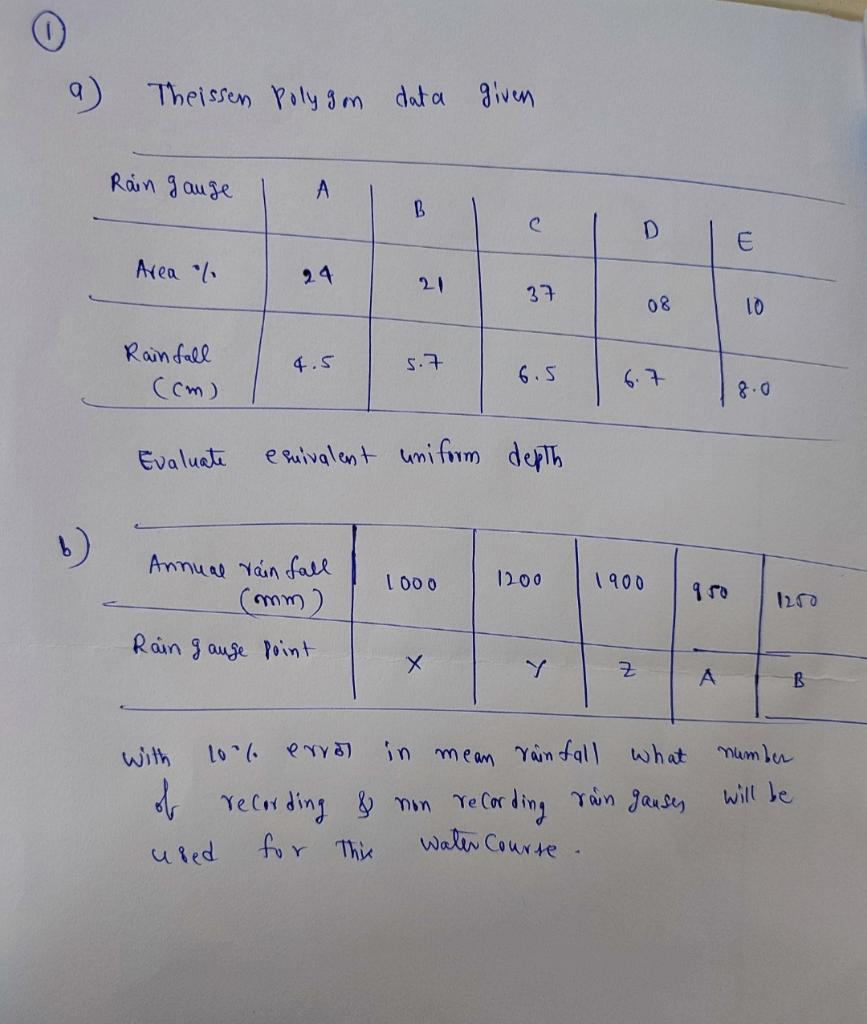 1
a) Theissen Polygon data given
Rain gauge A B C D E
Area % 24 21 37 08 10
Rainfall (cm) 4.5 5.7 6.5 6.7 8.0
Evaluate equivalent uniform depth
b)
Annual rain fall (mm) 1000 1200 1900 950 1250
Rain gauge Point X Y Z A B
With 10% error in mean rainfall what number
of recording & non recording rain gauses will be
used for this water Course.